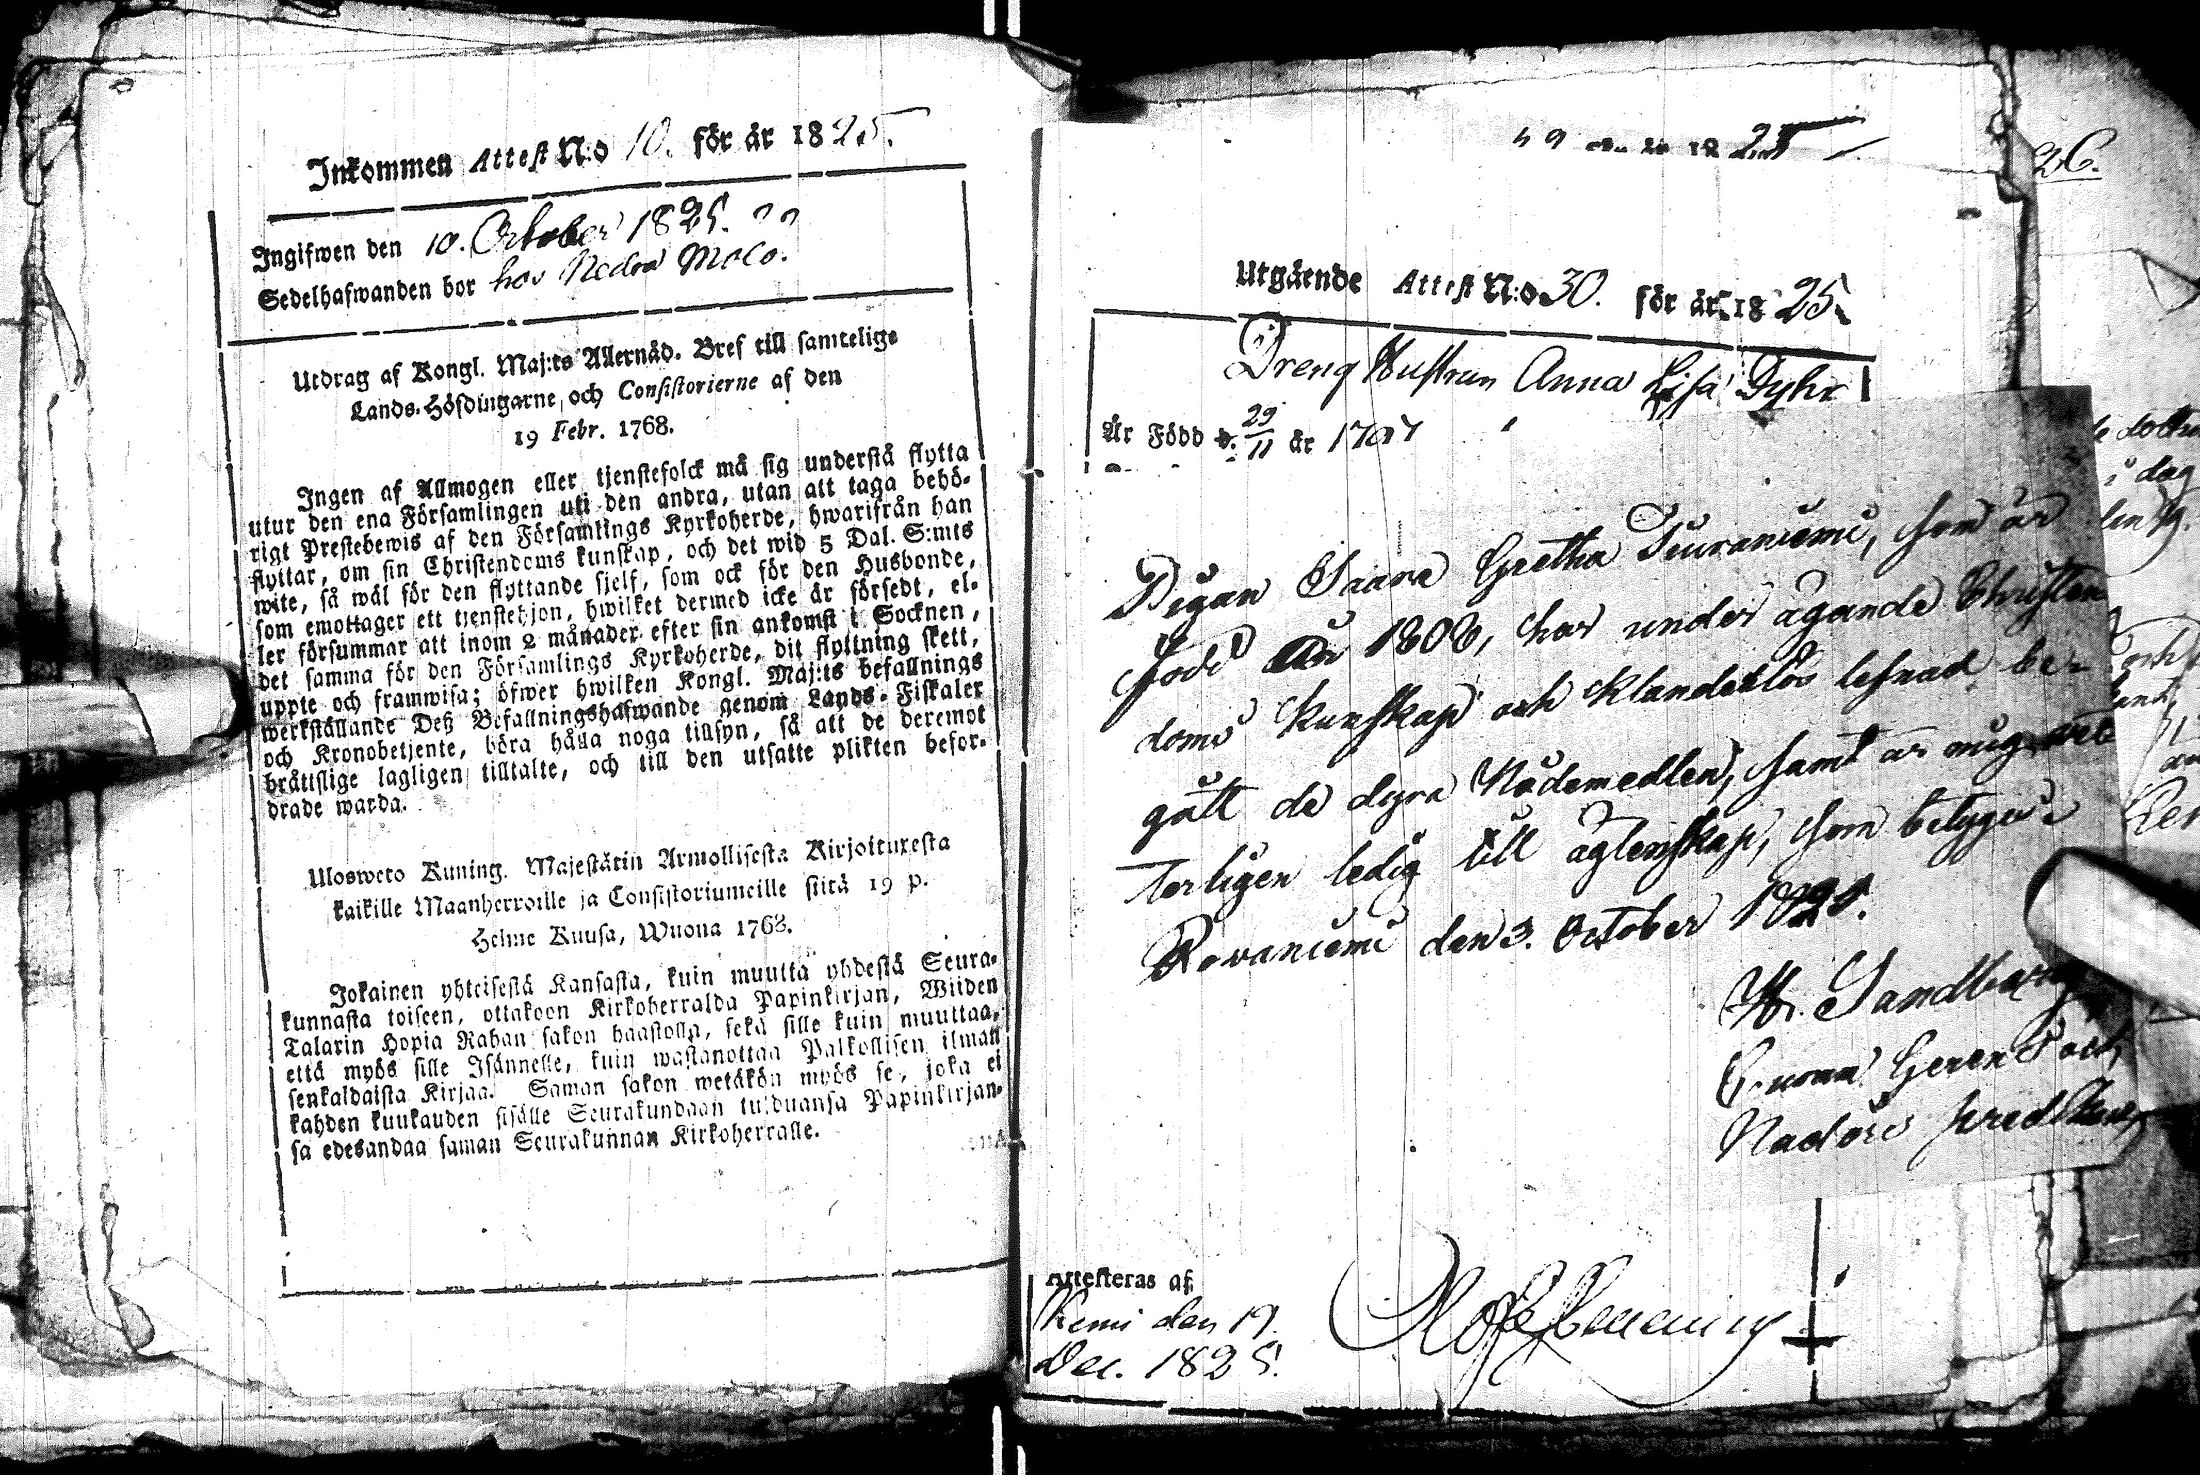 Inkommen Attest N:o 10. för år 1825.
Ingifwen den 10. October 1825.
Sedelhafwanden bor hos Nedra
Utdrag af Kongl. Maj:ts Allernåd. Bref till samtelige
Lands-Höfdingarne, och Consistorierne af den
19 Febr. 1768.
Ingen af Allmogen eller tjenstefolck må sig understå flytta
utur den ena Församlingen uti den andra, utan att taga behö-
rigt Prestebewis af den Församlings Kyrkoherde, hwarifrån han
flyttar, om sin Christendoms kunskap, och det wid 5 Dal. S:mts
wite, så wäl för den flyttande sjelf, som ock för den Husbonde,
som emottager ett tjenstehjon, hwilket dermed icke är försedt, el-
ler försummar att inom 2 månader efter sin ankomst i Socknen,
det samma för den Församlings Kyrkoherde, dit flyttning skett,
uppte och framwisa; öfwer hwilken Kongl. Maj:ts befallnings
werkställande Deß Befallningshafwande genom Lands-Fiskaler
och Kronobetjente, böra hålla noga tillsyn, så att de deremot
bråttslige lagligen tilltalte, och till den utsatte plikten befor-
drade warda.
Ulosweto Kuning. Majestätin Armollisesta Kirjoituxesta
kaikille Maanherroille ja Consistoriumeille siitä 19 p.
Helme Kuusa, Wuona 1768.
Jokainen yhteisestä Kansasta, kuin muutta yhdestä Seura-
kunnasta toiseen, ottakoon Kirkoherralda Papinkirjan, Wiiden
Talarin Hopia Rahan sakon haastolla, sekä sille kuin muuttaa,
että myös sille Isännelle, kuin wastanottaa Palkollisen ilman
senkaldaista Kirjaa. Saman sakon wetäkön myös se, joka ei
kahden kuukauden sisälle Seurakundaan tulduansa Papinkirjan-
sa edesandaa saman Seurakunnan Kirkoherralle.
25
26.
Utgående Attest N:o 30. för år 1825.
Dreng Hustrun Anna Lisa Dyhr
Är Född d. 29/11 år 1797
Pigan Saara Gretha Siuraniemi, som är
född År 1808, har under ägande Christen
doms kunskap och klanderlös lefnad be-
gått de dyra Nådemedlen, samt är mig
terligen ledig till ägtenskap, som betygas
Rovaniemi den 3. October 1825.
Sandberg
Attesteras af
Kemi den 19.
Dec. 1825.